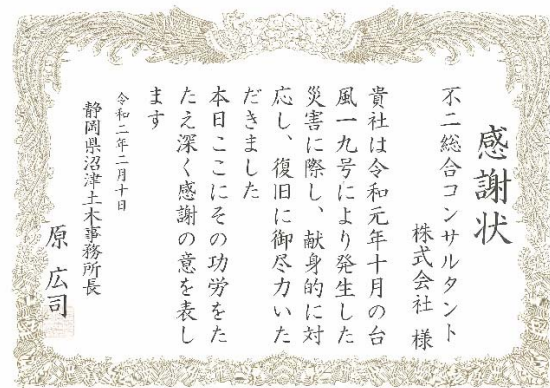 感謝状
不二総合コンサルタント
株式会社 様
貴社は令和元年十月の台
風一九号により発生した
災害に際し、献身的に対
応し、復旧に御尽力いた
だきました
本日ここにその功労をた
たえ深く感謝の意を表し
ます
令和二年二月十日
静岡県沼津土木事務所長
原 広司